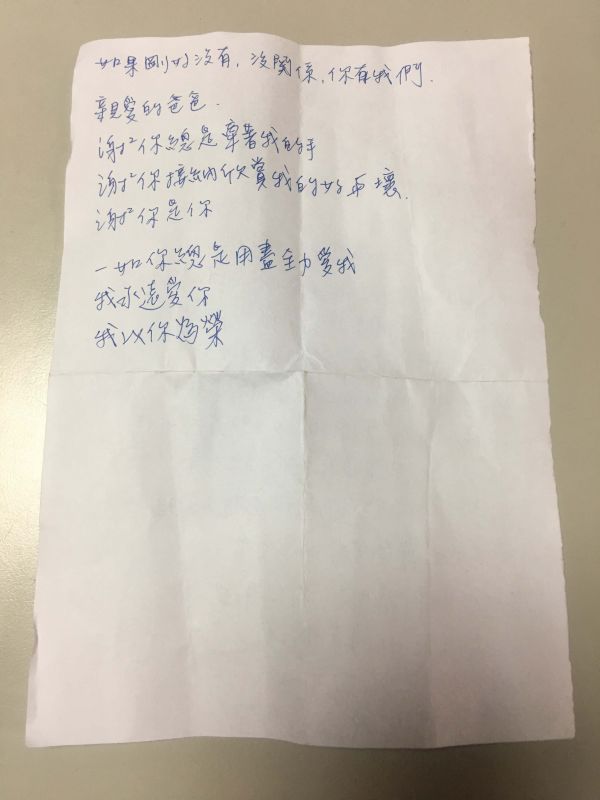 如果剛好沒有，沒關係，你有我們.
親愛的爸爸.
謝²你總是牽著我的手
謝²你接納欣賞我的好與壞.
謝²你是你
一如你總是用盡全力愛我
我永遠愛你
我以你為榮